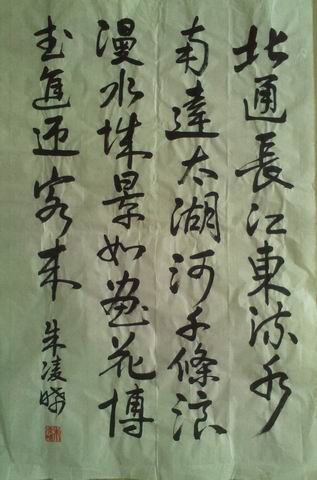 北通長江東流水
南達太湖河千條浪
漫水城景如畫花博
武進迎客來
朱凌